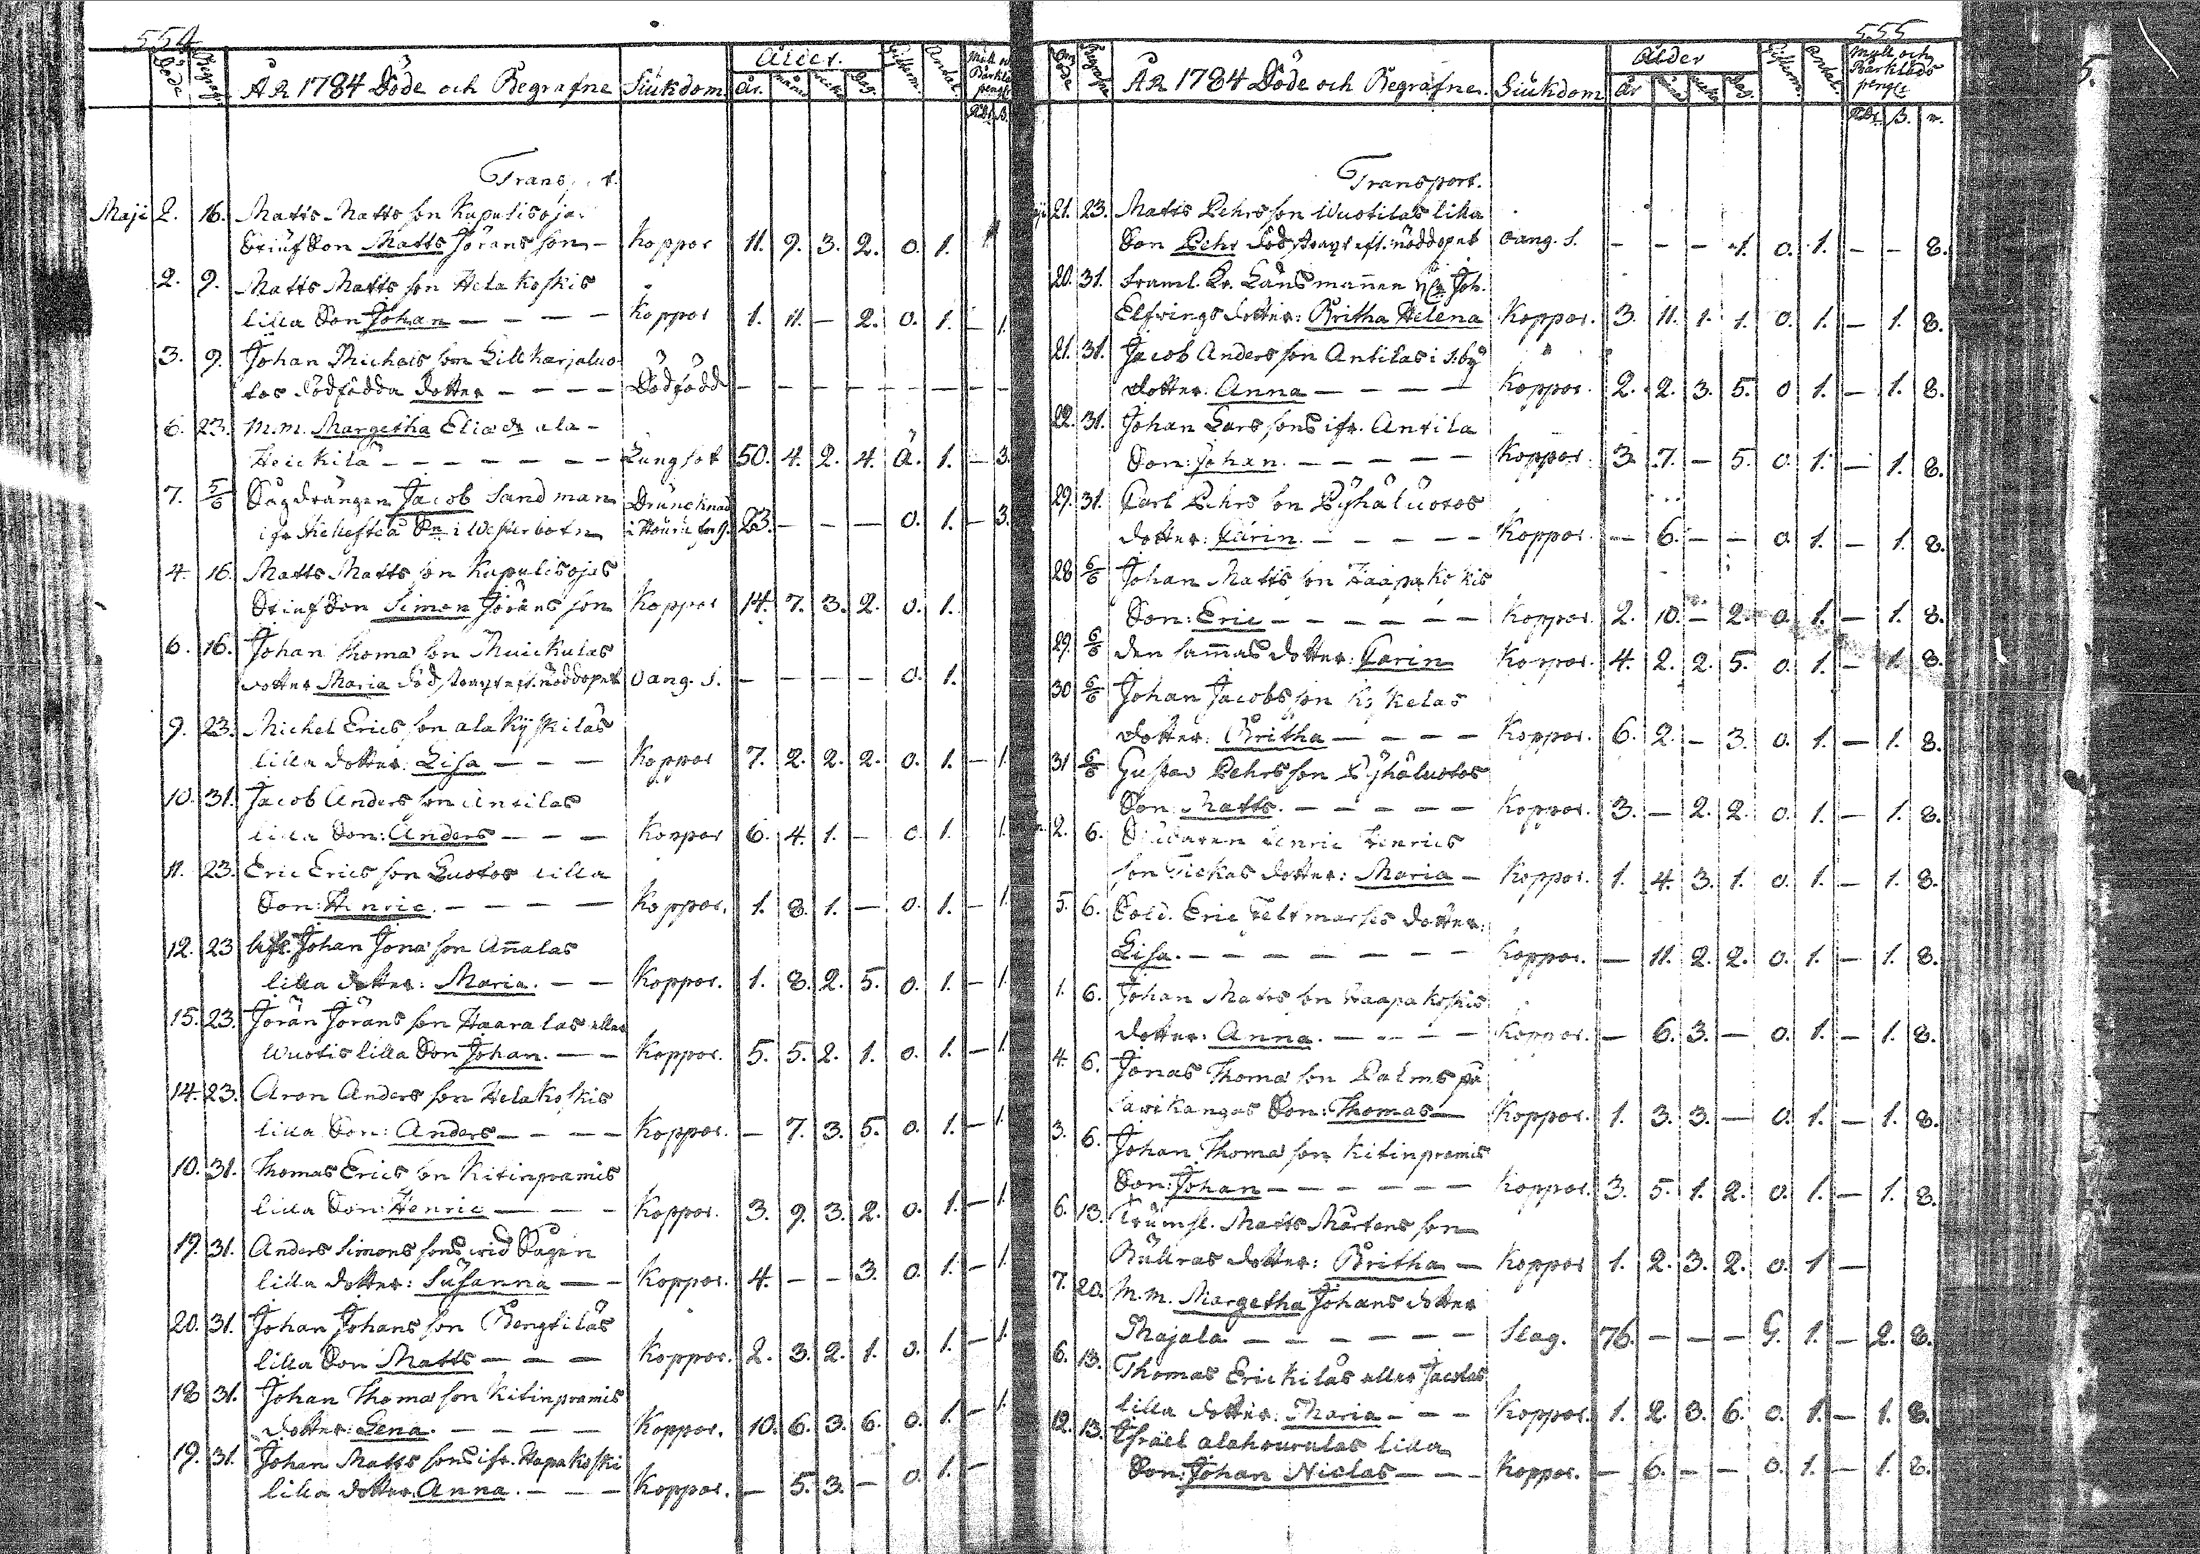 554
Död Begr. År 1784 Döde och Begrafne Siukdom Ålder. år. mån. veck. dag. Antal. Mull och Bårkläd. peng. Rdr. ß.
Transport.
Maji 2. 16. Matts Matts son Kupulisoja
Stiuf Son Matts Jörans son – Koppor 11. 9. 3. 2. o. 1.
2. 9. Matts Matts son Helakoskis
lilla Son Johan – – – – Koppor 1. 11. – 2. o. 1. – 1.
3. 9. Johan Michels son Lillkarjaluo
tos dödfödda dotter – – – – Dödfödd – – – – – – – –
6. 23. M.m. Margetha Eliæ dr ala-
Heickilä – – – – – – Lungsot 50. 4. 2. 4. Ä. 1. – 3.
7. 5/6 Sågdrängen Jacob Sandman Drunknad
ifr Skellefteå Sn i Westerbotn 23. – – – o. 1. – 3.
4. 16. Matts Matts son Kupulisojas
Stiuf Son Simon Jörans son Koppor 14. 7. 3. 2. o. 1.
6. 16. Johan Thomæ son Muickulas
dotter Maria död strax eft. nöddopet oang. s. – – – – o. 1.
9. 23. Michel Erics son alakyskiläs
lilla dotter: Lisa – – – Koppor 7. 2. 2. 2. o. 1. – 1.
10. 31. Jacob Anders son Antilas
lilla Son: Anders – – – Koppor 6. 4. 1. – o. 1. 1.
11. 23. Eric Erics son Luotos lilla
Son: Henric. – – – – Koppor. 1. 8. 1. – o. 1. – 1.
12. 23 Johan Jonæ son Añalas
lilla dotter: Maria. – – Koppor. 1. 8. 2. 5. o. 1. – 1.
15. 23. Jöran Jörans son Haaralas eller
Wuotis lilla Son Johan. – – Koppor. 5. 5. 2. 1. o. 1. – 1.
14. 23. Aron Anders son Helakoskis
lilla Son: Anders – – – – Koppor. – 7. 3. 5. o. 1. – 1.
10. 31. Thomas Erics son Kitinpramis
lilla Son: Henric – – – Koppor. 3. 9. 3. 2. o. 1. – 1.
19. 31. Anders Simons sons wid Sågen
lilla dotter: Susanna – – Koppor. 4. – – 3. o. 1. – 1.
20. 31. Johan Johans son Bengtiläs
lilla Son Matts – – – Koppor. 2. 3. 2. 1. o. 1. – 1.
18 31. Johan Thomæ son Kitinpramis
dotter: Lena. – – – – Koppor. 10. 6. 3. 6. o. 1. – 1.
19. 31. Johan Matts sons ifr. Hapakoski
lilla dotter. Anna. – – – Koppor. – 5. 3. – o. 1. –
555
Död Begrafne År 1784 Döde och Begrafne. Siukdom Ålder år mån veck. Dag. Antal. Mull och Bårkläds penge Rdr. ß. r.
Transport.
21. 23. Matts Pehrs son Wuotilas lilla
Son Pehr död strax eft. nöddopet oang. s. – – – 1. o. 1. – – 8.
20. 31. framl. Cr. Länsmannen Joh.
Elfvings dotter: Britha Helena Koppor. 3. 11. 1. 1. o. 1. – 1. 8.
21. 31. Jacob Anders son Antilas i s. by
dotter: Anna – – – – Koppor. 2. 2. 3. 5. o 1. – 1. 8.
22. 31. Johan Lars sons ifr. Antila
Son: Johan. – – – – – Koppor. 3. 7. – 5. o. 1. – 1. 8.
29. 31. Carl Pehrs son Pyhäluotos
dotter: Carin. – – – – – Koppor. – 6. – – o. 1. – 1. 8.
28 6/6 Johan Matts son Haapakoskis
Son: Eric – – – – – – Koppor. 2. 10. – 2. o. 1. – 1. 8.
29. 6/6 den sam̄as dotter: Carin Koppor. 4. 2. 2. 5. o. 1. – 1. 8.
30 6/6 Johan Jacobs son Koskelas
dotter: Britha – – – – Koppor. 6. 2. – 3. o. 1. – 1. 8.
31 6/6 Gustav Pehrs son Pyhäluotos
Son: Matts. – – – – – Koppor. 3. – 2. 2. o. 1. – 1. 8.
2. 6. Henric Henrics
son Tickas dotter: Maria – Koppor. 1. 4. 3. 1. o. 1. – 1. 8.
5. 6. Sold. Eric Feltmarks dotter:
Lisa. – – – – – – – Koppor. – 11. 2. 2. o. 1. – 1. 8.
1. 6. Johan Matts son Haapakoskis
dotter: Anna. – – – – Koppor. – 6. 3. – o. 1. – 1. 8.
4. 6. Jonas Thomæ son Palms på
Savikangas Son: Thomas – Koppor. 1. 3. 3. – o. 1. – 1. 8.
3. 6. Johan Thomæ son Kitinpramis
Son: Johan – – – – – – Koppor. 3. 5. 1. 2. o. 1. – 1. 8.
6. 13. Trumsl. Matts Mårtens son
Bullras dotter: Britha – Koppor 1. 2. 3. 2. o. 1 –
7. 20. M.m. Margetha Johans dotter
Majala – – – – – – Slag. 76. – – – G. 1. – 2. 8.
6. 13. Thomas Erickiläs eller Jacolas
lilla dotter: Maria – – – Koppor. 1. 2. 3. 6. o. 1. – 1. 8.
12. 13. Israel alahourulas lilla
Son: Johan Niclas – – – Koppor. – 6. – – o. 1. – 1. 8.